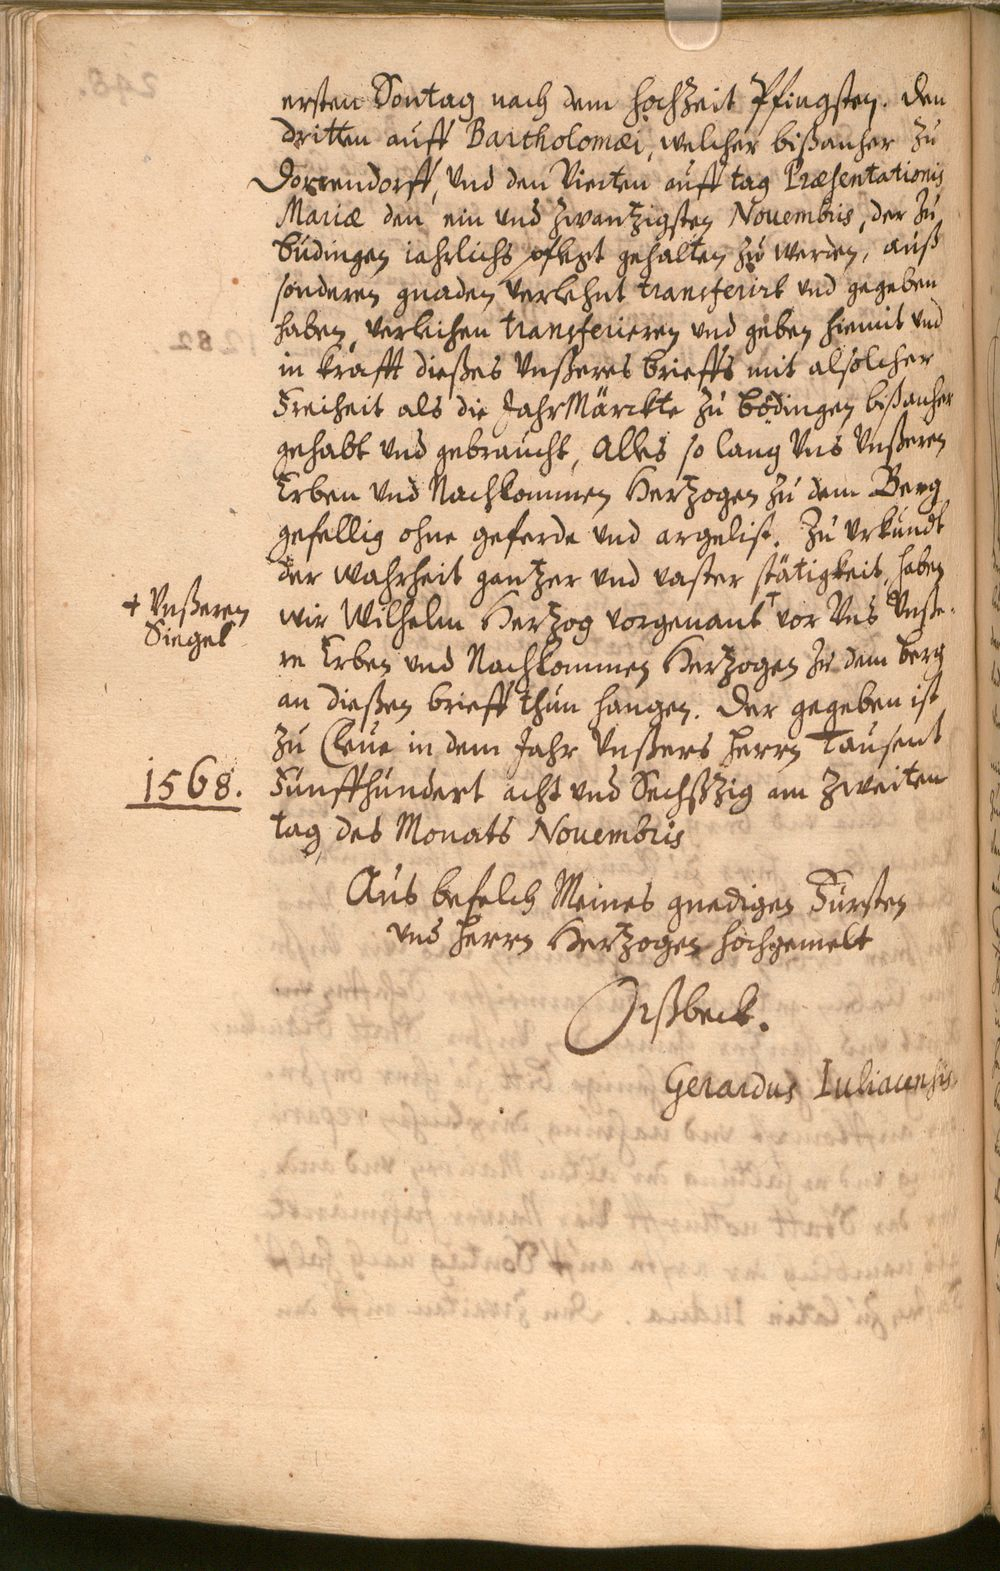 ersten Sontag nach dem hochZeit Pfingsten. Den
dritten auff Bartholomæi, welcher bißanher Zu
Dorrendorff, Und den Vierten auff tag Præsentationis
Mariæ den ein und Zwantzigsten Nouembris, der Zu
büdingen iahrlichs pflegt gehalten Zu werden, auß
sonderen gnaden, Verlehnt transferirt und gegeben
haben, verleihen transferieren und geben hiemit und
in krafft dießes Unßeres brieffs mit alsolcher
Freiheit als die JahrMärckte Zu bödingen bißanher
gehabt und gebraucht, Alles so lang Uns Unßeren
Erben und Nachkommen Hertzogen Zu dem Berg
gefellig ohne geferde und argelist. Zu Urkundt
der wahrheit gantzer und vaster stätigkeit, haben
+ Unßeren
Siegel
wir Wilhelm Hertzog vorgenant + vor Uns Unße-
re Erben und Nachkommen Hertzogen Zu dem berg
an dießen brieff thun hangen. Der gegeben ist
Zu Cleue in dem Jahr Unßers herrn Tausent
1568.
Funffhundert acht und Sechßzig am Zweiten
tag des Monats Nouembris
Aus befelch Meines gnedigen Fürsten
und herrn Hertzogen hochgemelt
Orßbeck.
Gerardus Iuliacensis